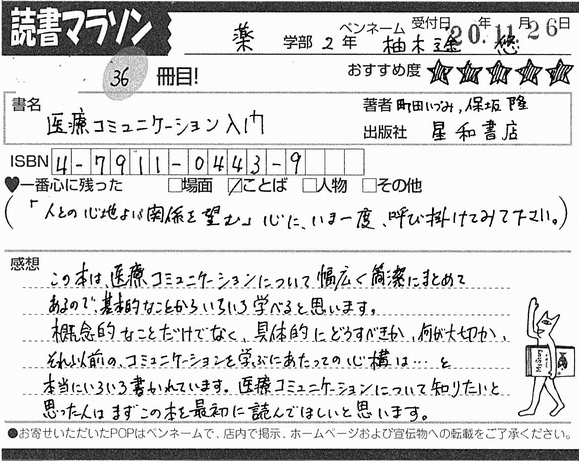 読書マラソン
薬 学部 2年 ペンネーム 柚木 悠 受付日 20年11月26日
36 冊目! おすすめ度 ★★★★★
書名 医療コミュニケーション入門
著者 町田いづみ, 保坂 隆
出版社 星和書店
ISBN 4-7911-0443-9
♥一番心に残った □場面 ☑ことば □人物 □その他
(「人との心地よい関係を望む」心に、いま一度、呼び掛けてみて下さい。)
感想
この本は、医療コミュニケーションについて幅広く簡潔にまとめて
あるので、基本的なことからいろいろ学べると思います。
概念的なことだけでなく、具体的にどうすべきか、何が大切か、
それ以前の、コミュニケーションを学ぶにあたっての心構は…と
本当にいろいろ書かれています。医療コミュニケーションについて知りたいと
思った人はまずこの本を最初に読んでほしいと思います。
●お寄せいただいたPOPはペンネームで、店内で掲示、ホームページおよび宣伝物への転載をご了承ください。